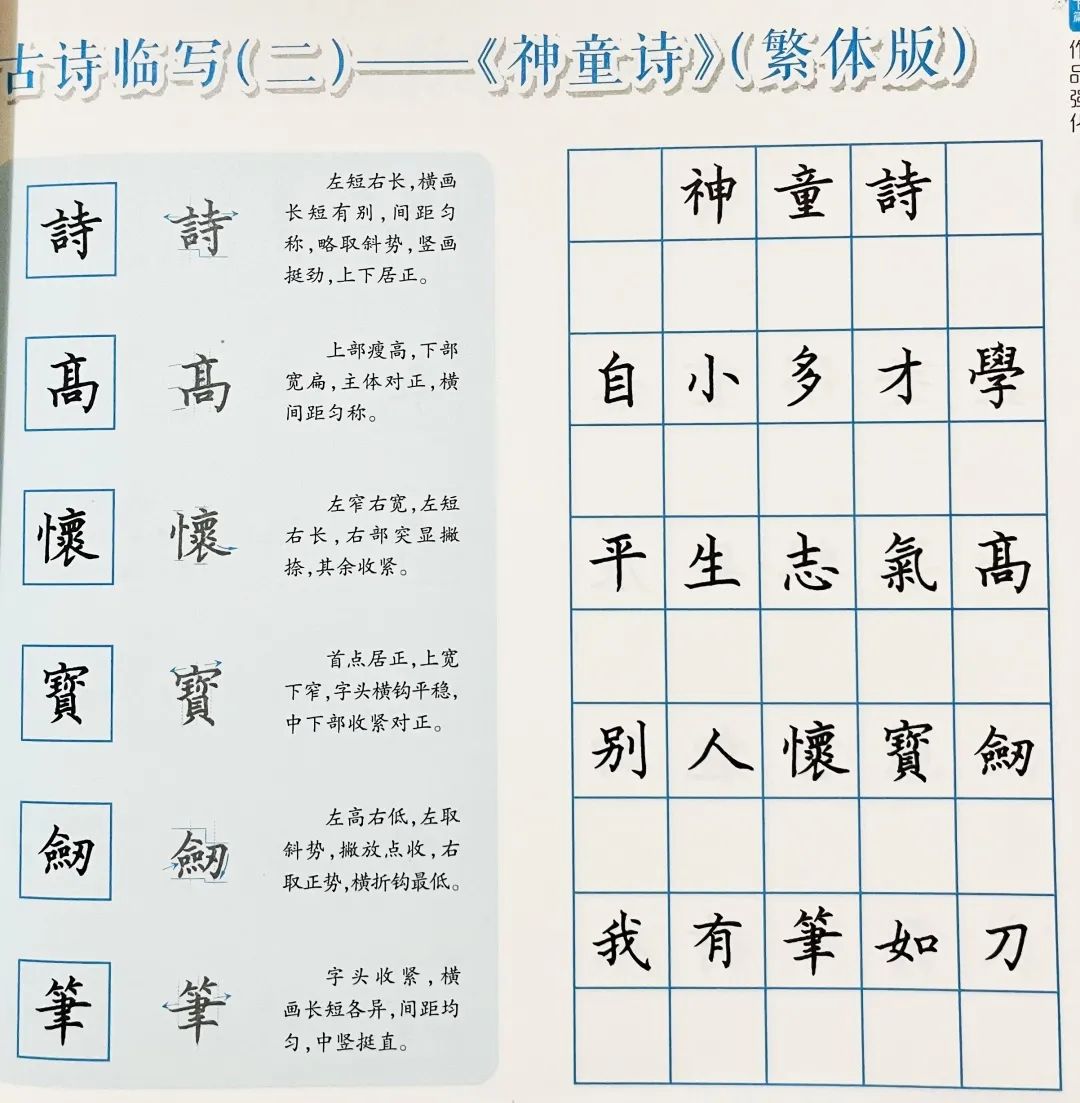 古诗临写(二)——《神童诗》(繁体版)
作品强化
詩 詩
左短右长,横画
长短有别,间距匀
称,略取斜势,竖画
挺劲,上下居正。
髙 髙
上部瘦高,下部
宽扁,主体对正,横
间距匀称。
懷 懷
左窄右宽,左短
右长,右部突显撇
捺,其余收紧。
寶 寶
首点居正,上宽
下窄,字头横钩平稳,
中下部收紧对正。
劒 劒
左高右低,左取
斜势,撇放点收,右
取正势,横折钩最低。
筆 筆
字头收紧,横
画长短各异,间距均
匀,中竖挺直。
神童詩
自小多才學
平生志氣髙
别人懷寶劒
我有筆如刀